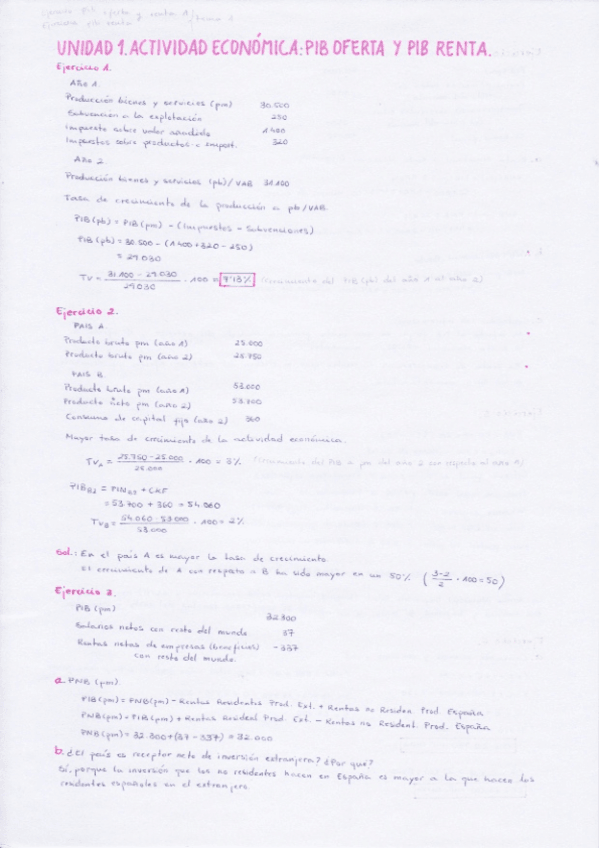 UNIDAD 1. ACTIVIDAD ECONÓMICA: PIB OFERTA Y PIB RENTA.
Ejercicio 1.
Año 1.
Producción bienes y servicios (pm) 30.500
Subvención a la explotación 250
Impuesto sobre valor añadido 1400
Impuestos sobre productos e import. 320
Año 2
Producción bienes y servicios (pb)/VAB 31.100
Tasa de crecimiento de la producción a pb/VAB.
PIB(pb) = PIB(pm) - (Impuestos - Subvenciones)
PIB(pb) = 30.500 - (1400 + 320 - 250)
= 29.030
TV = 31.100 - 29.030 / 29.030 · 100 = 7'13%
Ejercicio 2.
PAIS A
Producto bruto pm (año 1) 25.000
Producto bruto pm (año 2) 25.750
PAIS B
Producto bruto pm (año 1) 53.000
Producto neto pm (año 2) 53.700
Consumo de capital fijo (año 2) 360
Mayor tasa de crecimiento de la actividad económica.
TV_A = 25.750 - 25.000 / 25.000 · 100 = 3%
PIB_B2 = PIN_B2 + CKF
= 53.700 + 360 = 54.060
TV_B = 54.060 - 53.000 / 53.000 · 100 = 2%
Sol.: En el país A es mayor la tasa de crecimiento
El crecimiento de A con respecto a B ha sido mayor en un 50% (3-2 / 2 · 100 = 50)
Ejercicio 3.
PIB (pm) 32.300
Salarios netos con resto del mundo 37
Rentas netas de empresas (beneficios) -337
con resto del mundo.
a. PNB (pm)
PIB(pm) = PNB(pm) - Rentas Residentes Prod. Ext. + Rentas no Residen Prod. España
PNB(pm) = PIB(pm) + Rentas Resident Prod. Ext. - Rentas no Resident. Prod. España
PNB(pm) = 32.300 + (37 - 337) = 32.000
b. ¿El país es receptor neto de inversión extranjera? ¿Por qué?
Sí, porque la inversión que los no residentes hacen en España es mayor a la que hacen los
residentes españoles en el extranjero.